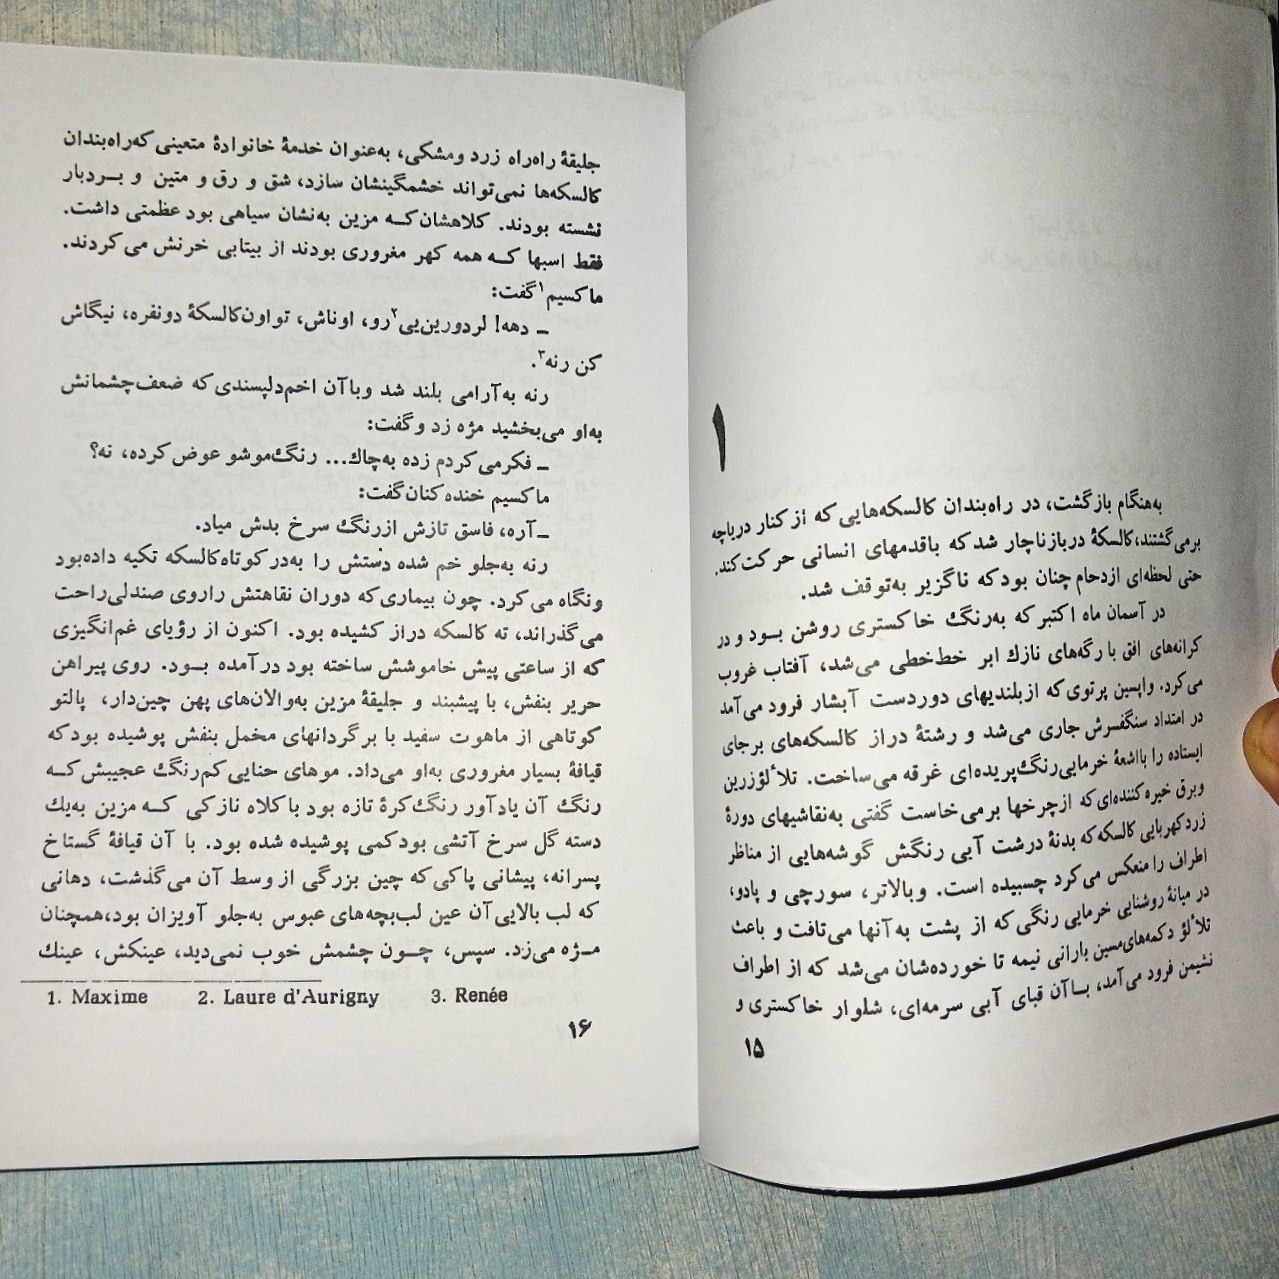 ۱
به‌هنگام بازگشت، در راه‌بندان کالسکه‌هایی که از کنار دریاچه
برمی‌گشتند، کالسکهٔ درباز ناچار شد که باقدمهای انسانی حرکت کند.
حتی لحظه‌ای ازدحام چنان بود که ناگزیر به‌توقف شد.
در آسمان ماه اکتبر که به‌رنگ خاکستری روشن بود و در
کرانه‌های افق با رگه‌های نازك ابر خط‌خطی می‌شد، آفتاب غروب
می‌کرد. واپسین پرتوی که از بلندیهای دوردست آبشار فرود می‌آمد
در امتداد سنگفرش جاری می‌شد و رشتهٔ دراز کالسکه‌های برجای
ایستاده را بااشعهٔ خرمایی رنگ‌پریده‌ای غرقه می‌ساخت. تلألؤ زرین
و برق خیره‌کننده‌ای که از چرخها برمی‌خاست گفتی به‌نقاشیهای دورهٔ
زرد کهربایی کالسکه که بدنهٔ درشت آبی رنگش گوشه‌هایی از مناظر
اطراف را منعکس می‌کرد چسبیده است. و بالاتر، سورچی و پادو،
در میانهٔ روشنایی خرمایی رنگی که از پشت به آنها می‌تافت و باعث
تلألؤ دکمه‌های مسین بارانی نیمه تا خورده‌شان می‌شد که از اطراف
نشیمن فرود می‌آمد، با آن قبای آبی سرمه‌ای، شلوار خاکستری و
۱۵
جلیقهٔ راه‌راه زرد ومشکی، به‌عنوان خدمهٔ خانوادهٔ متعینی که راه‌بندان
کالسکه‌ها نمی‌تواند خشمگینشان سازد، شق و رق و متین و بردبار
نشسته بودند. کلاهشان که مزین به‌نشان سیاهی بود عظمتی داشت.
فقط اسبها که همه کهر مغروری بودند از بیتابی خرنش می‌کردند.
ماکسیم۱ گفت:
ـ دهه! لردورین‌یی۲ رو، اوناش، تو اون کالسکهٔ دونفره، نیگاش
کن رنه۳.
رنه به‌آرامی بلند شد و باآن اخم دلپسندی که ضعف چشمانش
به‌او می‌بخشید مژه زد و گفت:
ـ فکر می‌کردم زده به‌چاك... رنگ موشو عوض کرده، نه؟
ماکسیم خنده‌کنان گفت:
ـ آره، فاسق تازش از رنگ سرخ بدش میاد.
رنه به‌جلو خم شده دستش را به‌در کوتاه کالسکه تکیه داده بود
ونگاه می‌کرد. چون بیماری که دوران نقاهتش را روی صندلی راحت
می‌گذراند، ته کالسکه دراز کشیده بود. اکنون از رؤیای غم‌انگیزی
که از ساعتی پیش خاموشش ساخته بود درآمده بود. روی پیراهن
حریر بنفش، با پیشبند و جلیقهٔ مزین به‌والان‌های پهن چین‌دار، پالتو
کوتاهی از ماهوت سفید با برگردانهای مخمل بنفش پوشیده بود که
قیافهٔ بسیار مغروری به‌او می‌داد. موهای حنایی کم‌رنگ عجیبش که
رنگ آن یادآور رنگ کرهٔ تازه بود با کلاه نازکی که مزین به‌یك
دسته گل سرخ آتشی بود کمی پوشیده شده بود. با آن قیافهٔ گستاخ
پسرانه، پیشانی پاکی که چین بزرگی از وسط آن می‌گذشت، دهانی
که لب بالایی آن عین لب بچه‌های عبوس به‌جلو آویزان بود، همچنان
مژه می‌زد. سپس، چون چشمش خوب نمی‌دید، عینکش، عینك
1. Maxime 2. Laure d'Aurigny 3. Renée
۱۶